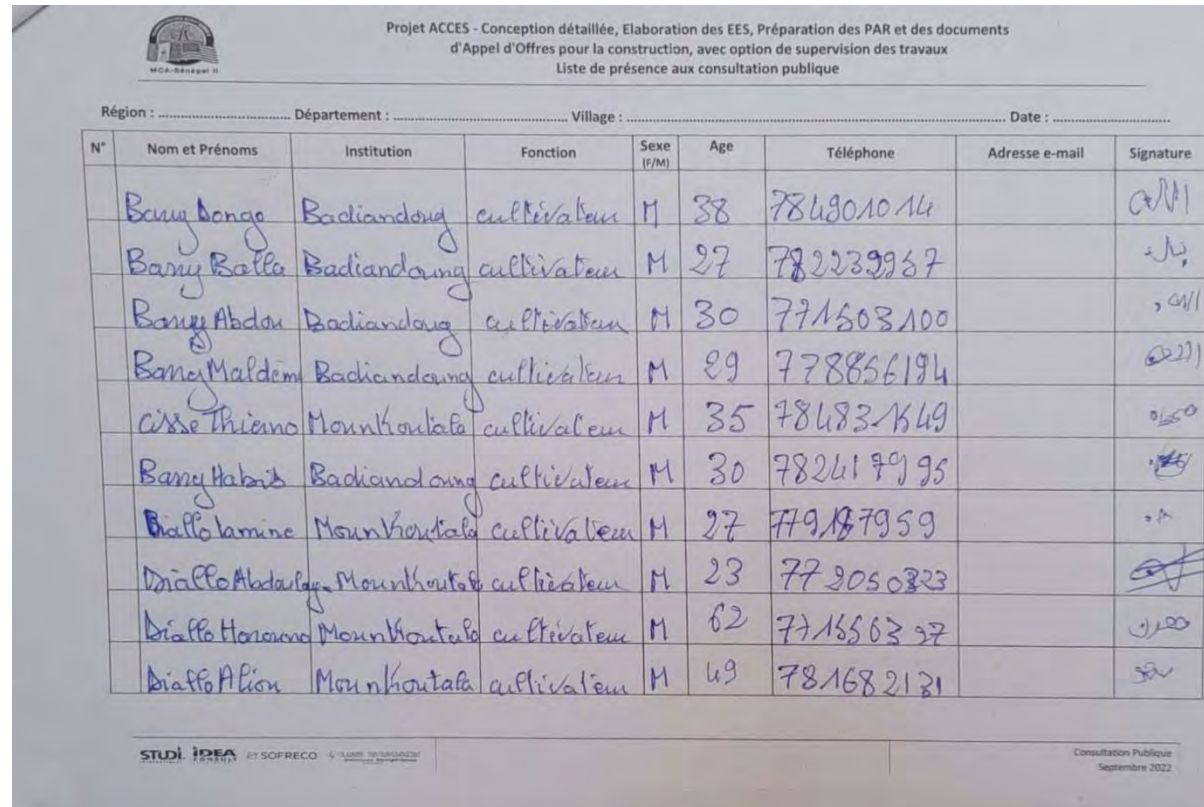 MCA-Sénégal II
Projet ACCES - Conception détaillée, Elaboration des EES, Préparation des PAR et des documents
d'Appel d'Offres pour la construction, avec option de supervision des travaux
Liste de présence aux consultation publique
Région : ................................. Département : ............................................ Village : ............................................................................................... Date : .............................
N° Nom et Prénoms Institution Fonction Sexe (F/M) Age Téléphone Adresse e-mail Signature
Barry Dongo Badiandoug cultivateur M 38 784901014
Barry Balla Badiandoung cultivateur M 27 782239957
Barry Abdou Badiandoug cultivateur M 30 771503100
Barry Badiandoung cultivateur M 29 778856194
Cisse Thierno Mounkoutala cultivateur M 35
Barry Badiandoung cultivateur M 30 782417995
Diallo lamine Mounkoutala cultivateur M 27 779187959
Diallo Mounkoutala cultivateur M 23
Diallo Mounkoutala cultivateur M 62 771556397
Diallo Alion Mounkoutala cultivateur M 49 781682131
STUDI IDEA CONSULT SOFRECO
Consultation Publique
Septembre 2022